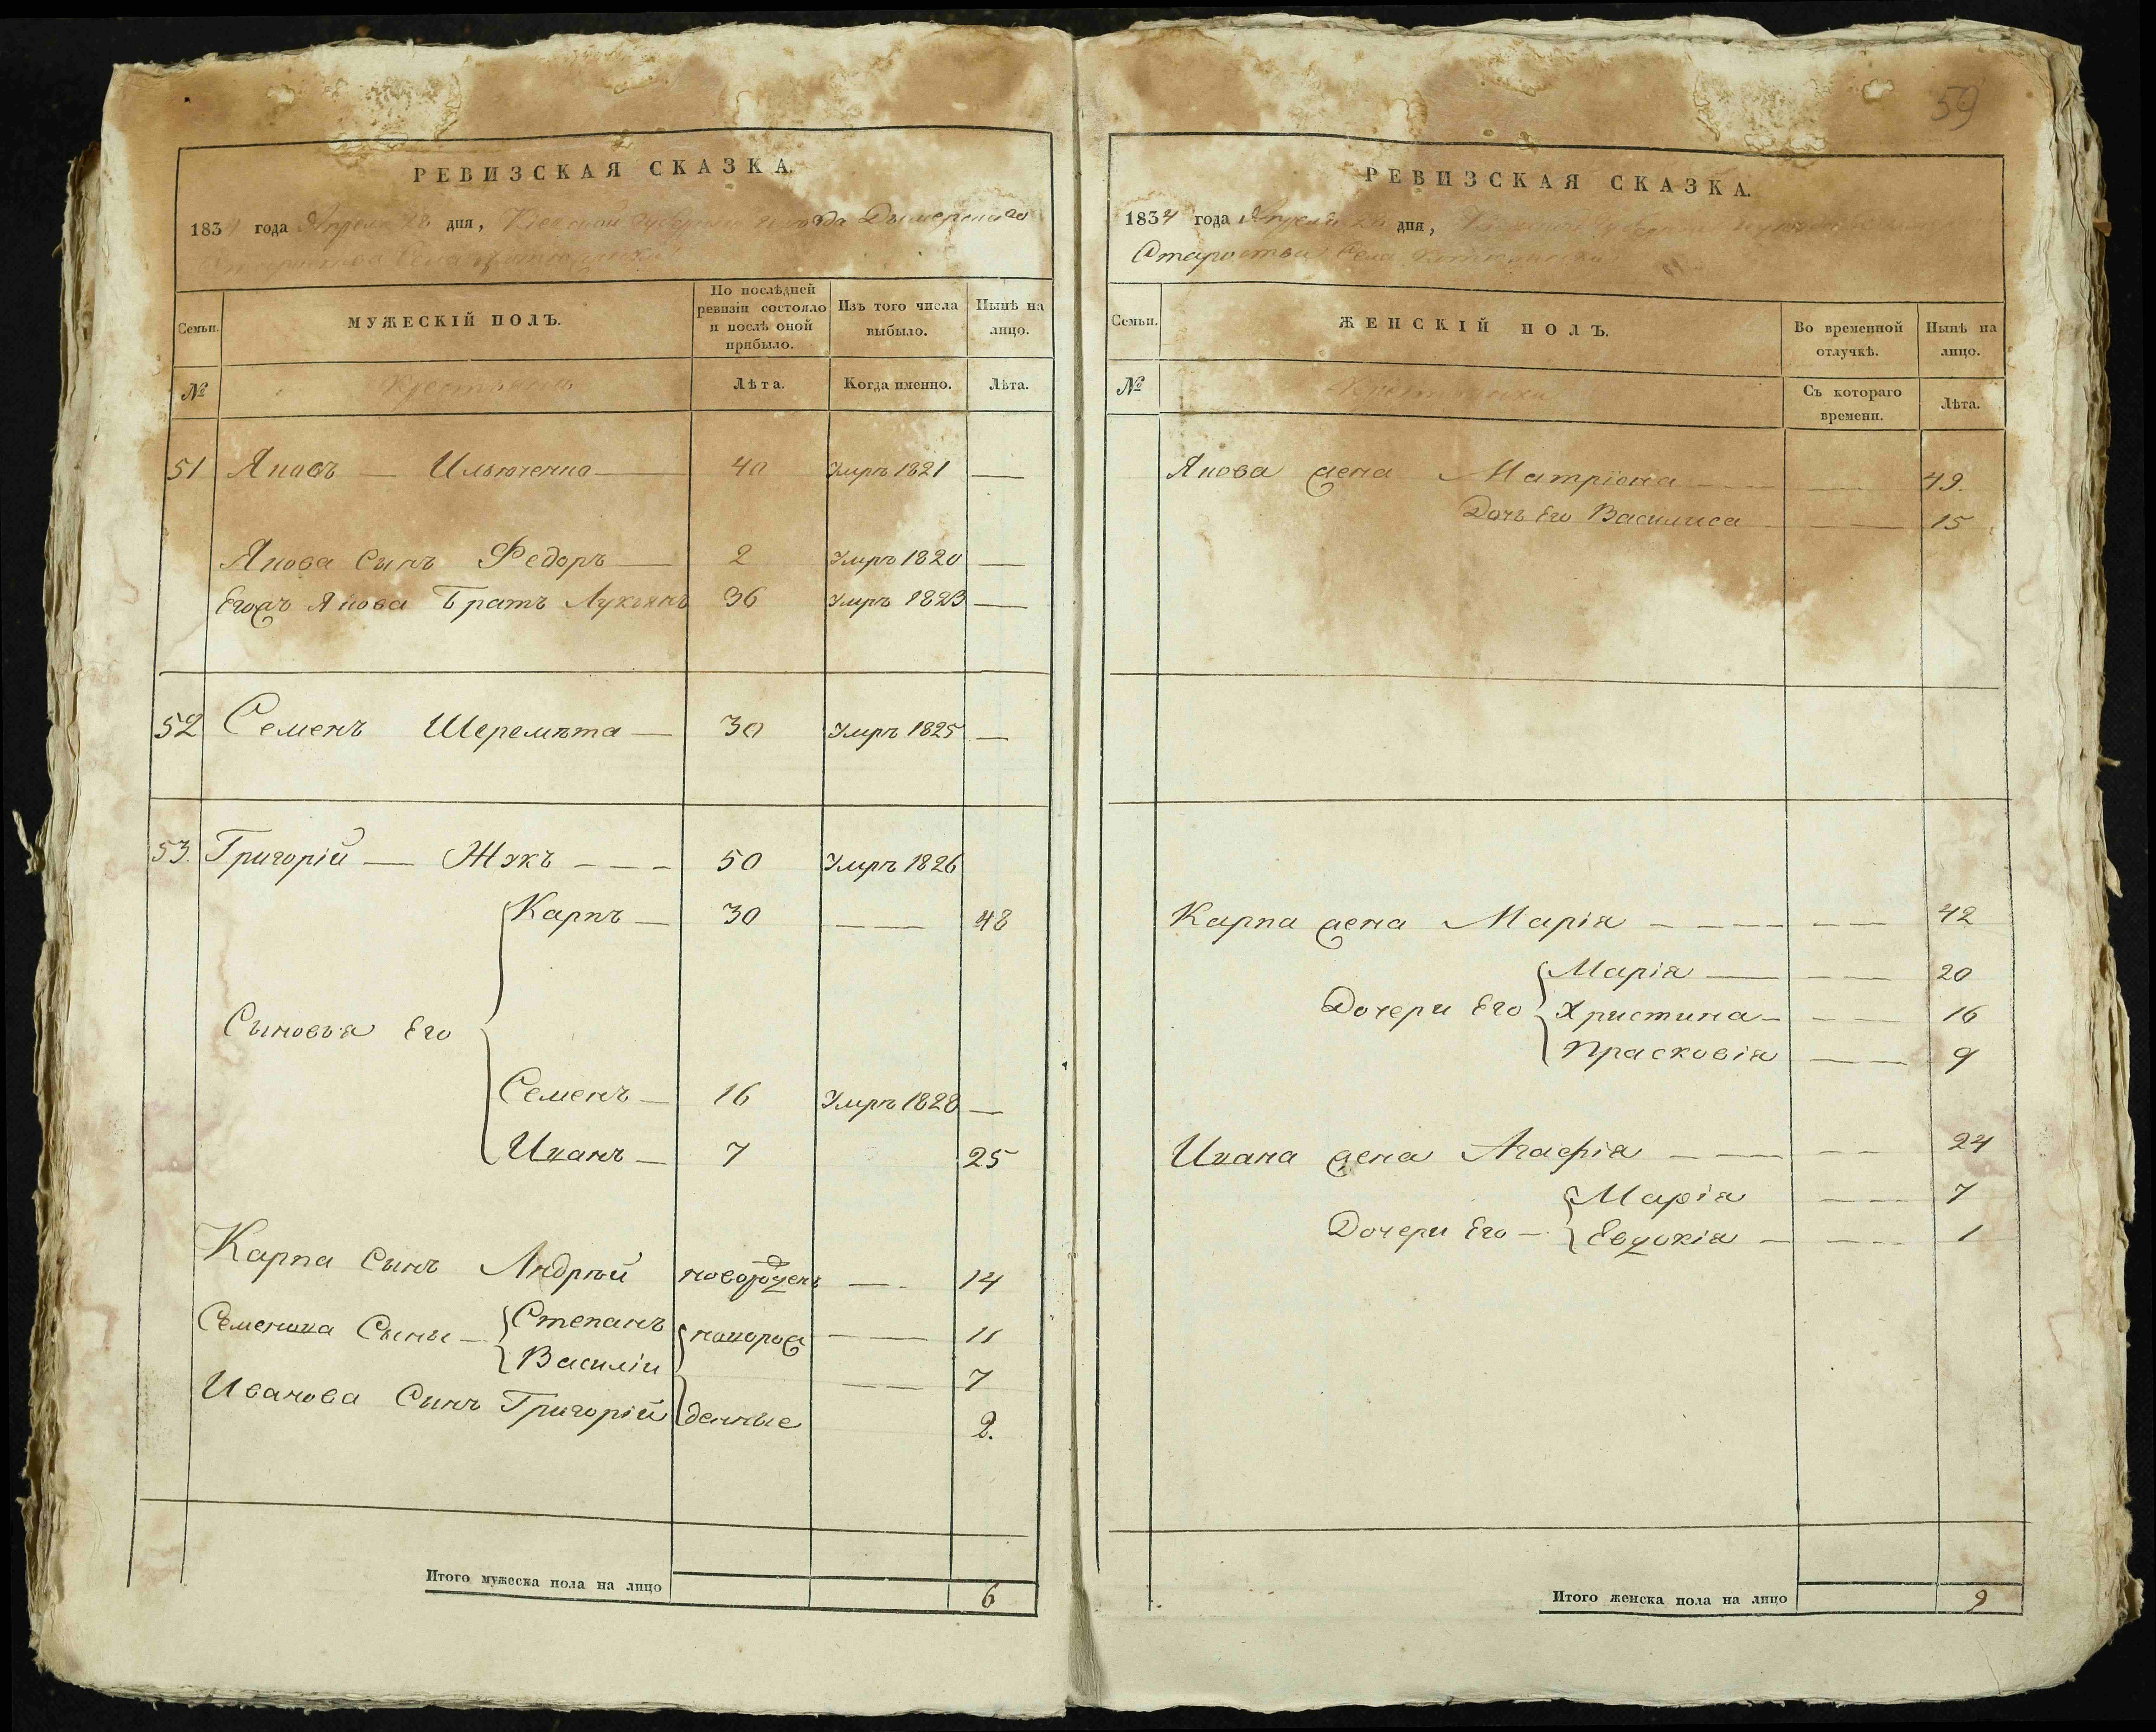 59
РЕВИЗСКАЯ СКАЗКА.
1834 года Апреля дня, Кіевской Губерніи уѣзда Дымерскаго
Староства Села
Семьи.
МУЖЕСКІЙ ПОЛЪ.
По послѣдней ревизіи состояло и послѣ оной прибыло.
Изъ того числа выбыло.
Нынѣ на лицо.
№
Крестьяне
Лѣта.
Когда именно.
Лѣта.
51 Яковъ — Ильюченко — 40 Умръ 1821 —
Якова Сынъ Федоръ — 2 Умръ 1820 —
Егожъ Якова Братъ Лукъянъ 36 Умръ 1823 —
52 Семенъ Шеремѣта — 30 Умръ 1825 —
53. Григорій — Жукъ — — — 50 Умръ 1826
Карпъ — 30 — — 48
Сыновья Его
Семенъ — 16 Умръ 1828 —
Иванъ — 7 25
Карпа Сынъ Андрѣй новорожденъ — 14
Семенова Сыны — Степанъ новорож — — 11
Василіи — — 7
Иванова Сынъ Григорій денные 2.
Итого мужеска пола на лицо 6
РЕВИЗСКАЯ СКАЗКА.
1834 года Апреля дня,
Староства Села
Семьи.
ЖЕНСКІЙ ПОЛЪ.
Во временной отлучкѣ.
Нынѣ на лицо.
№
Крестьянки
Съ котораго времени.
Лѣта.
Якова жена Матріона — — 49.
Дочь Его Василиса — — 15
Карпа жена Марія — — — — — — 42
Марія — — — 20
Дочери Его Христина — — — 16
Прасковія — — 9
Ивана жена Агафія — — — — 24
Марія — — 7
Дочери Его — Евдокія — — — 1
Итого женска пола на лицо 9